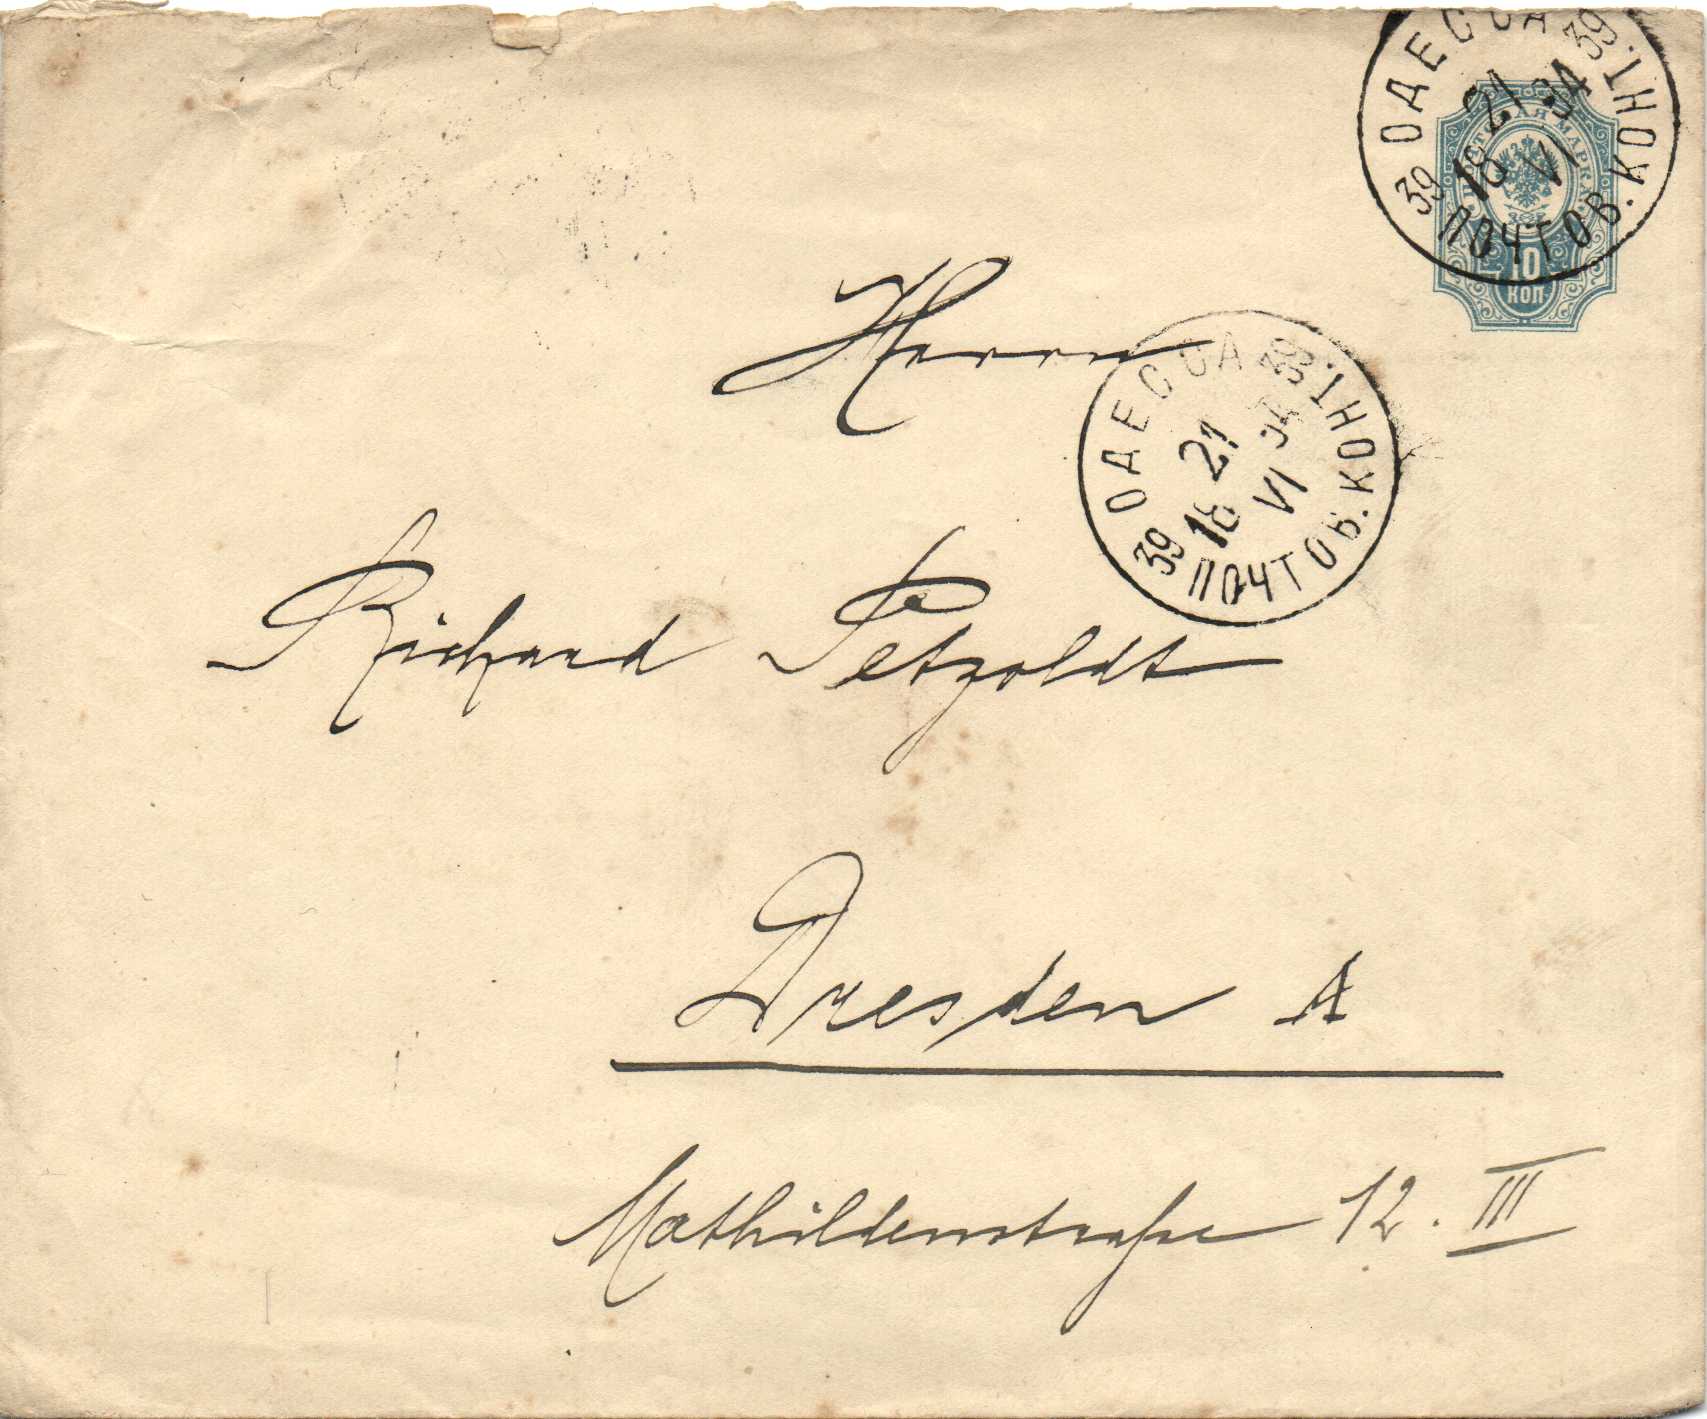 39 ОДЕССА 39. ПОЧТОВ. КОНТ.
21 VI 18 94
ПОЧТОВАЯ МАРКА
10
КОП
Herrn
39 ОДЕССА 39. ПОЧТОВ. КОНТ.
21 VI 18 94
Richard Petzoldt
Dresden A
Mathildenstraße 12. III